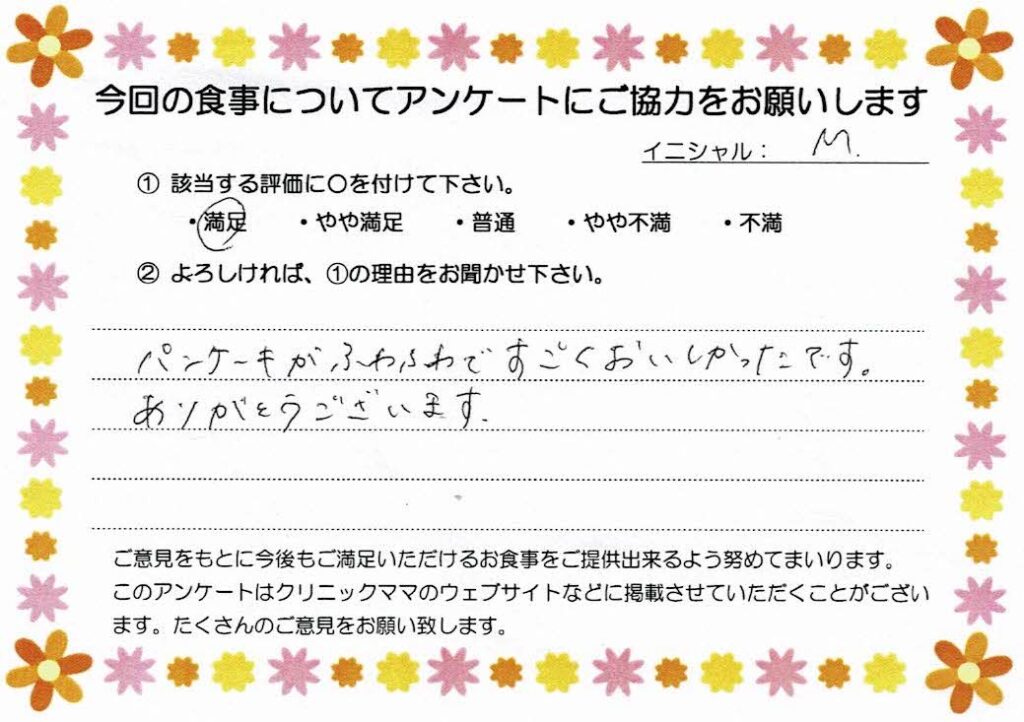 今回の食事についてアンケートにご協力をお願いします
イニシャル： M.
① 該当する評価に〇を付けて下さい。
・満足 ・やや満足 ・普通 ・やや不満 ・不満
② よろしければ、①の理由をお聞かせ下さい。
パンケーキがふわふわですごくおいしかったです。
ありがとうございます.
ご意見をもとに今後もご満足いただけるお食事をご提供出来るよう努めてまいります。
このアンケートはクリニックママのウェブサイトなどに掲載させていただくことがござい
ます。たくさんのご意見をお願い致します。